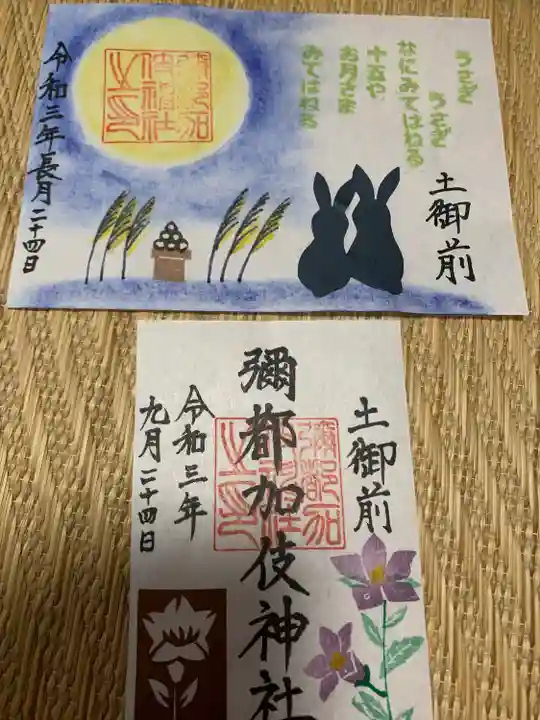 うさぎ
うさぎ
なにみてはねる
十五や
お月さま
みてはねる
土御前
令和三年長月二十四日
土御前
彌都加伎神社
令和三年
九月二十四日
彌都加
伎神社
之印